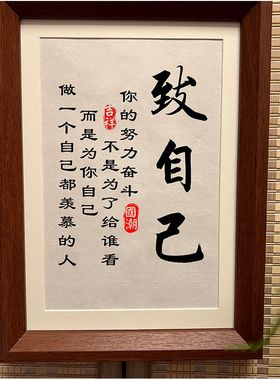 致自己
你的努力奋斗
國潮
吉祥
不是为了给谁看
而是为你自己
做一个自己都羡慕的人